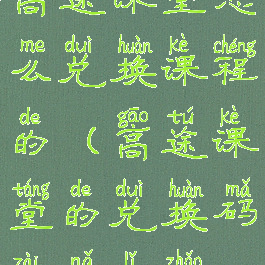 高途课堂怎
me duì huàn kè chéng
么兑换课程
de gāo tú kè
的（高途课
táng de duì huàn mǎ
堂的兑换码
zài nǎ lǐ zhǎo